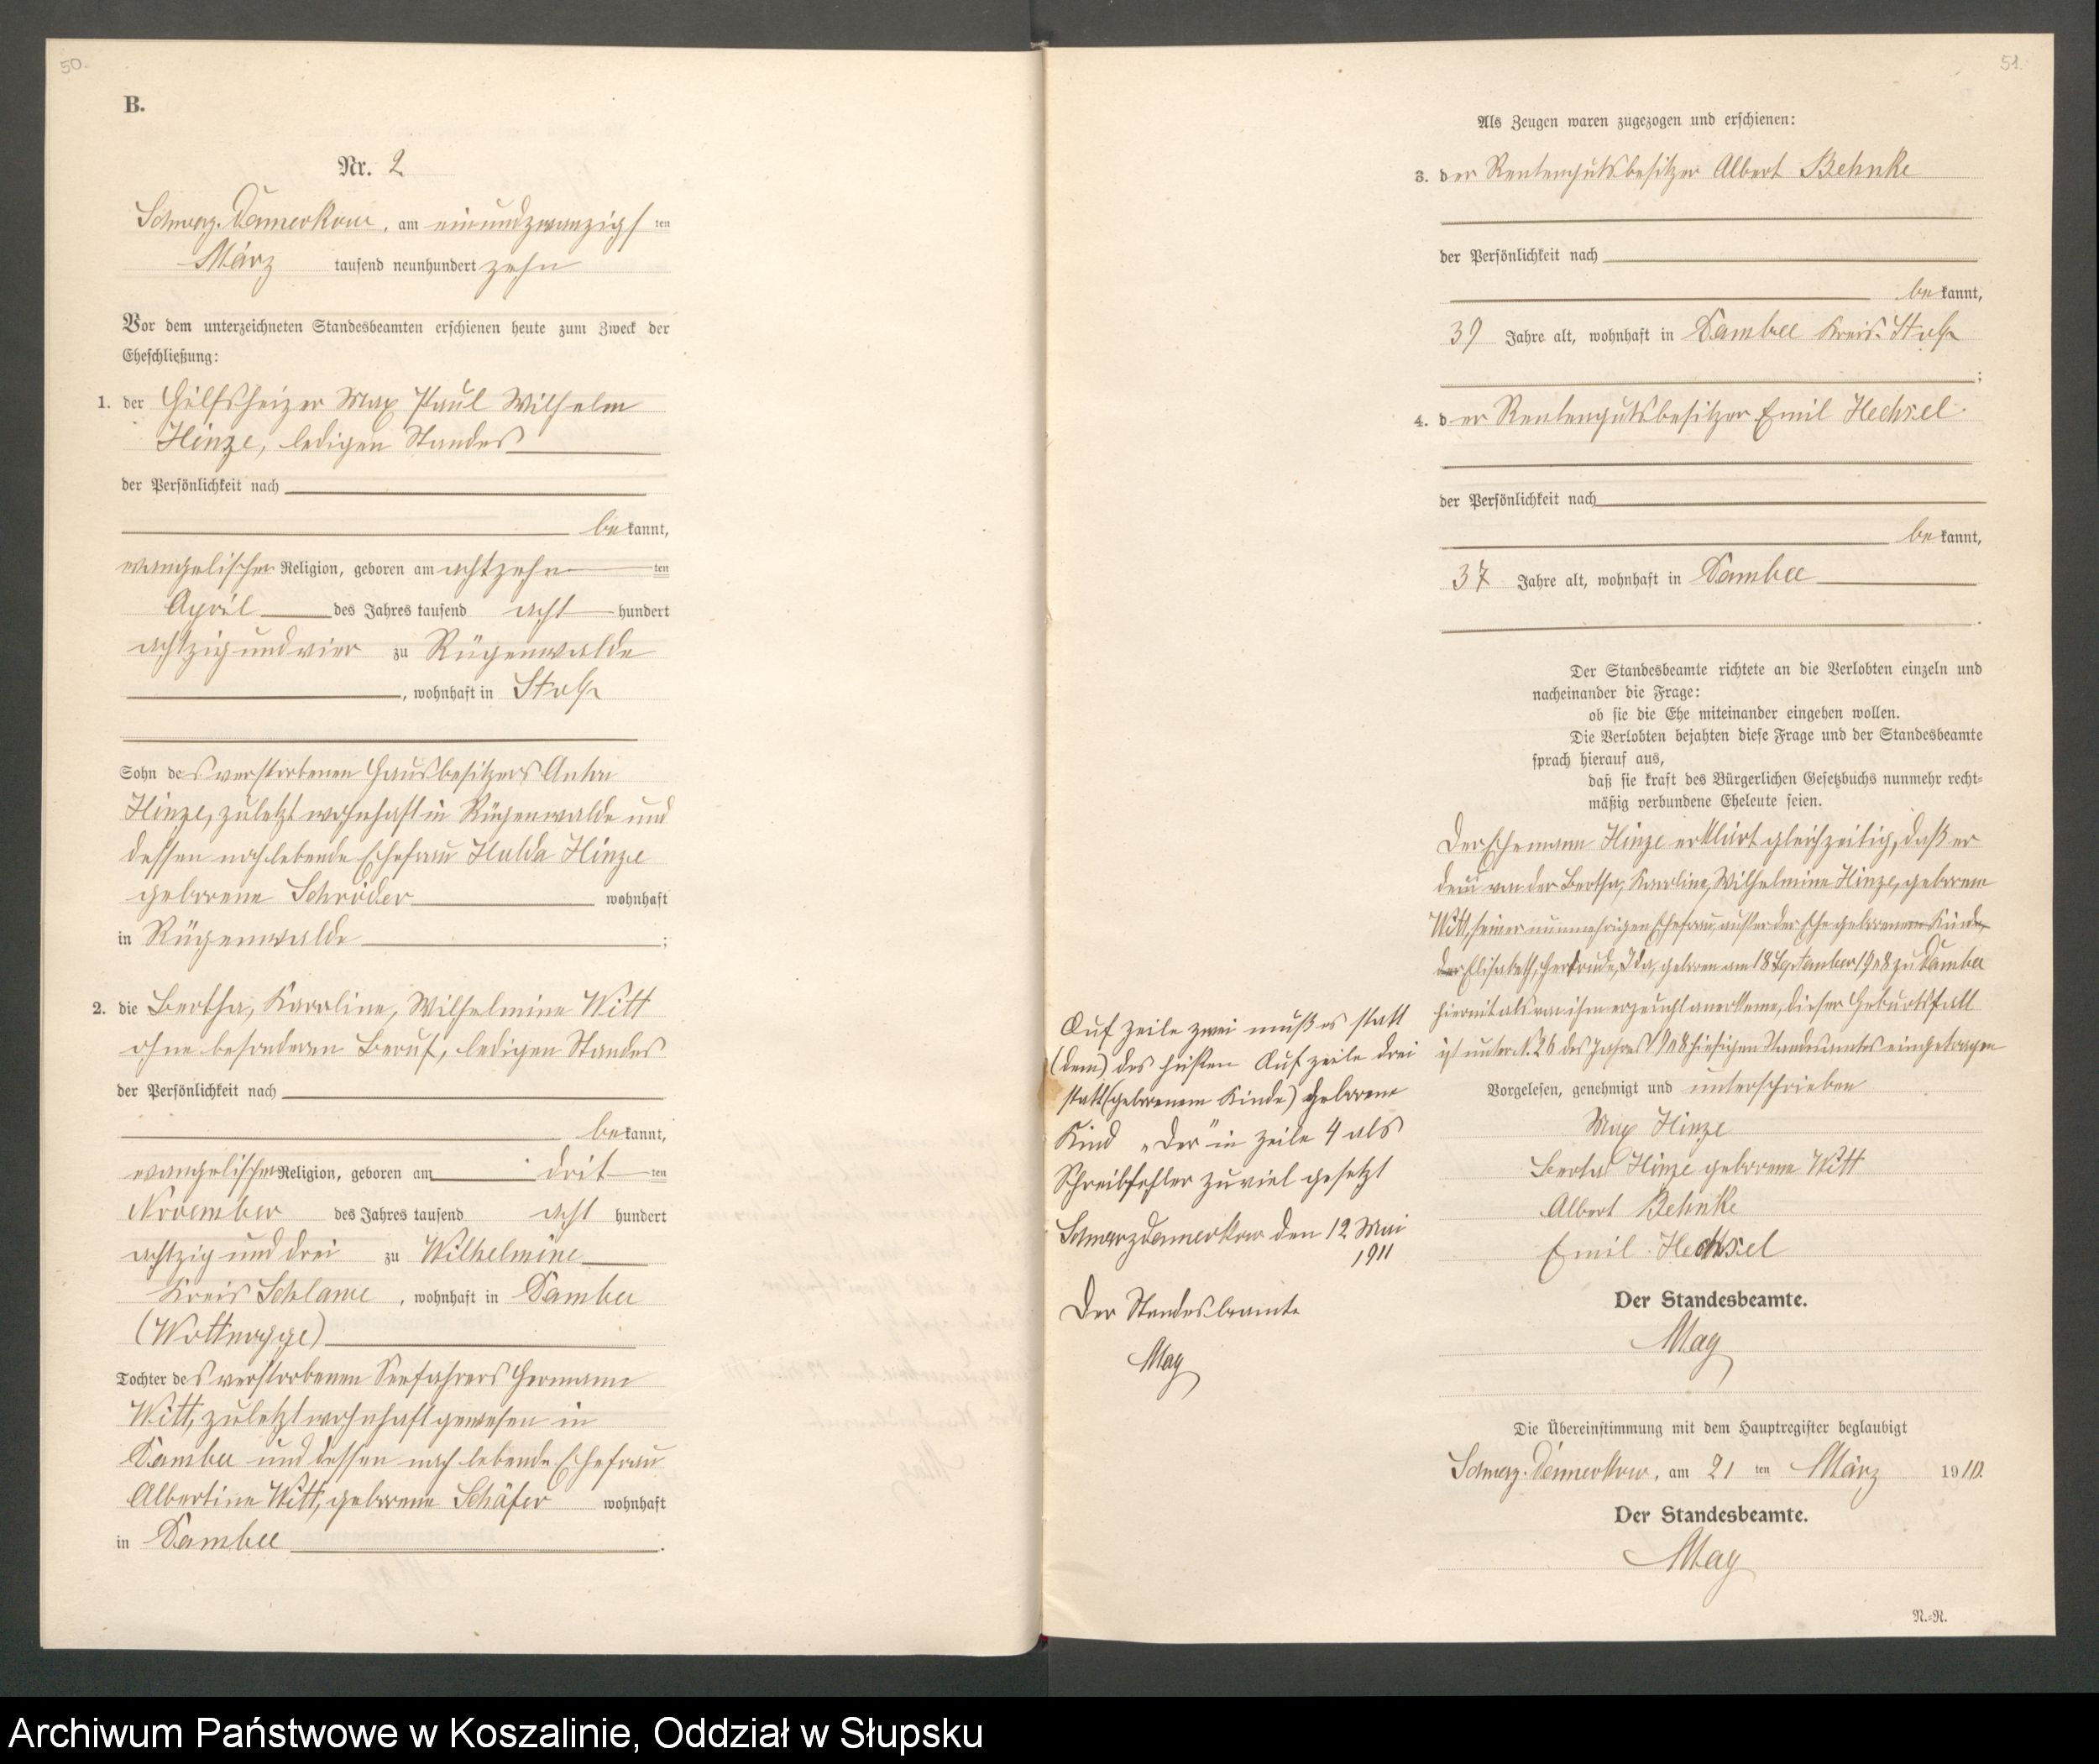 50.
B.
Nr. 2
Schwarz-Damerkow, am einundzwanzigs ten
März tausend neunhundert zehn
Vor dem unterzeichneten Standesbeamten erschienen heute zum Zweck der
Eheschließung:
1. der Hilfsheizer Max Paul Wilhelm
Hinze, ledigen Standes
der Persönlichkeit nach
be kannt,
evangelischer Religion, geboren am achtzehn ten
April des Jahres tausend acht hundert
achtzig und vier zu Rügenwalde
, wohnhaft in Stolp
Sohn des verstorbenen Hausbesitzers Anton
Hinze, zuletzt wohnhaft in Rügenwalde und
dessen noch lebende Ehefrau Hulda Hinze
geborene Schröder wohnhaft
in Rügenwalde ;
2. die Bertha, Karoline, Wilhelmine Witt
ohne besonderen Beruf, ledigen Standes
der Persönlichkeit nach
be kannt,
evangelischer Religion, geboren am drit ten
November des Jahres tausend acht hundert
achtzig und drei zu Wilhelmine
Kreis Schlawe , wohnhaft in Dambee
(Wottnogge)
Tochter des verstorbenen Seefahrers Hermann
Witt, zuletzt wohnhaft gewesen in
Dambee und dessen noch lebende Ehefrau
Albertine Witt, geborene Schäfer wohnhaft
in Dambee .
51.
Als Zeugen waren zugezogen und erschienen:
3. der Rentengutsbesitzer Albert Behnke
der Persönlichkeit nach
be kannt,
39 Jahre alt, wohnhaft in Dambee Kreis Stolp
;
4. der Rentengutsbesitzer Emil Hechsel
der Persönlichkeit nach
be kannt,
37 Jahre alt, wohnhaft in Dambee
.
Der Standesbeamte richtete an die Verlobten einzeln und
nacheinander die Frage:
ob sie die Ehe miteinander eingehen wollen.
Die Verlobten bejahten diese Frage und der Standesbeamte
sprach hierauf aus,
daß sie kraft des Bürgerlichen Gesetzbuchs nunmehr recht-
mäßig verbundene Eheleute seien.
Der Ehemann Hinze erklärt gleichzeitig, daß er
dem von der Bertha, Karoline, Wilhelmine Hinze, geborene
Witt, seiner nunmehrigen Ehefrau, außer der Ehe geborenem Kinde,
der Elisabeth, Gertrude, Ida, geboren am 18 September 1908 zu Dambee
hiermit als von ihm erzeugt anerkenne, dieser Geburtsfall
ist unter N. 26 des Jahres 1908 hiesigen Standesamtes eingetragen
Vorgelesen, genehmigt und unterschrieben
Max Hinze
Berta Hinze geborene Witt
Albert Behnke
Emil Hechsel
Der Standesbeamte.
May
Die Übereinstimmung mit dem Hauptregister beglaubigt
Schwarz-Damerkow, am 21 ten März 1910.
Der Standesbeamte.
May
N.-R.
Auf Zeile zwei muß es statt
(dem) das heißen Auf Zeile drei
statt (geborenem Kinde) geborene
Kind „der" in Zeile 4 als
Schreibfehler zuviel gesetzt
Schwarzdamerkow den 12 Mai
1911
Der Standesbeamte
May
Archiwum Państwowe w Koszalinie, Oddział w Słupsku